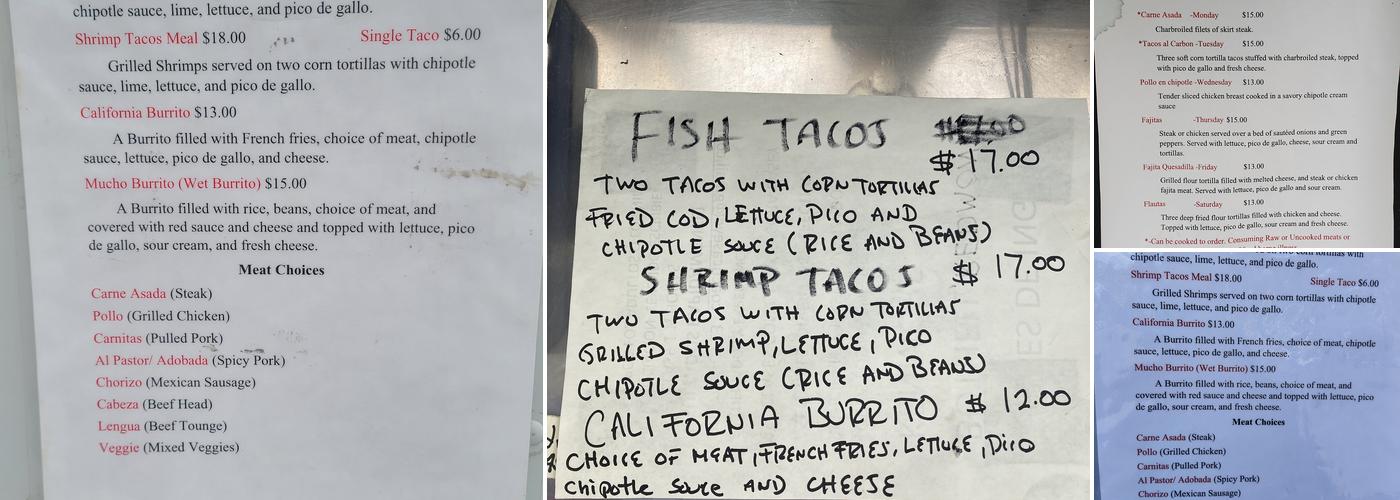 chipotle sauce, lime, lettuce, and pico de gallo.
Shrimp Tacos Meal $18.00 Single Taco $6.00
Grilled Shrimps served on two corn tortillas with chipotle
sauce, lime, lettuce, and pico de gallo.
California Burrito $13.00
A Burrito filled with French fries, choice of meat, chipotle
sauce, lettuce, pico de gallo, and cheese.
Mucho Burrito (Wet Burrito) $15.00
A Burrito filled with rice, beans, choice of meat, and
covered with red sauce and cheese and topped with lettuce, pico
de gallo, sour cream, and fresh cheese.
Meat Choices
Carne Asada (Steak)
Pollo (Grilled Chicken)
Carnitas (Pulled Pork)
Al Pastor/ Adobada (Spicy Pork)
Chorizo (Mexican Sausage)
Cabeza (Beef Head)
Lengua (Beef Tounge)
Veggie (Mixed Veggies)
FISH TACOS
$ 17.00
TWO TACOS WITH CORN TORTILLAS
FRIED COD, LETTUCE, PICO AND
CHIPOTLE SOUCE (RICE AND BEANS)
SHRIMP TACOS $ 17.00
TWO TACOS WITH CORN TORTILLAS
GRILLED SHRIMP, LETTUCE, PICO
CHIPOTLE SOUCE (RICE AND BEANS)
CALIFORNIA BURRITO $ 12.00
CHOICE OF MEAT, FRENCH FRIES, LETTUCE, PICO
Chipotle Souce AND CHEESE
*Carne Asada -Monday $15.00
Charbroiled filets of skirt steak.
*Tacos al Carbon -Tuesday $15.00
Three soft corn tortilla tacos stuffed with charbroiled steak, topped
with pico de gallo and fresh cheese.
Pollo en chipotle -Wednesday $13.00
Tender sliced chicken breast cooked in a savory chipotle cream
sauce
Fajitas -Thursday $15.00
Steak or chicken served over a bed of sautéed onions and green
peppers. Served with lettuce, pico de gallo, cheese, sour cream and
tortillas.
Fajita Quesadilla -Friday $13.00
Grilled flour tortilla filled with melted cheese, and steak or chicken
fajita meat. Served with lettuce, pico de gallo and sour cream.
Flautas -Saturday $13.00
Three deep fried flour tortillas filled with chicken and cheese.
Topped with lettuce, pico de gallo, sour cream and fresh cheese.
*-Can be cooked to order. Consuming Raw or Uncooked meats or
chipotle sauce, lime, lettuce, and pico de gallo.
Shrimp Tacos Meal $18.00 Single Taco $6.00
Grilled Shrimps served on two corn tortillas with chipotle
sauce, lime, lettuce, and pico de gallo.
California Burrito $13.00
A Burrito filled with French fries, choice of meat, chipotle
sauce, lettuce, pico de gallo, and cheese.
Mucho Burrito (Wet Burrito) $15.00
A Burrito filled with rice, beans, choice of meat, and
covered with red sauce and cheese and topped with lettuce, pico
de gallo, sour cream, and fresh cheese.
Meat Choices
Carne Asada (Steak)
Pollo (Grilled Chicken)
Carnitas (Pulled Pork)
Al Pastor/ Adobada (Spicy Pork)
Chorizo (Mexican Sausage)